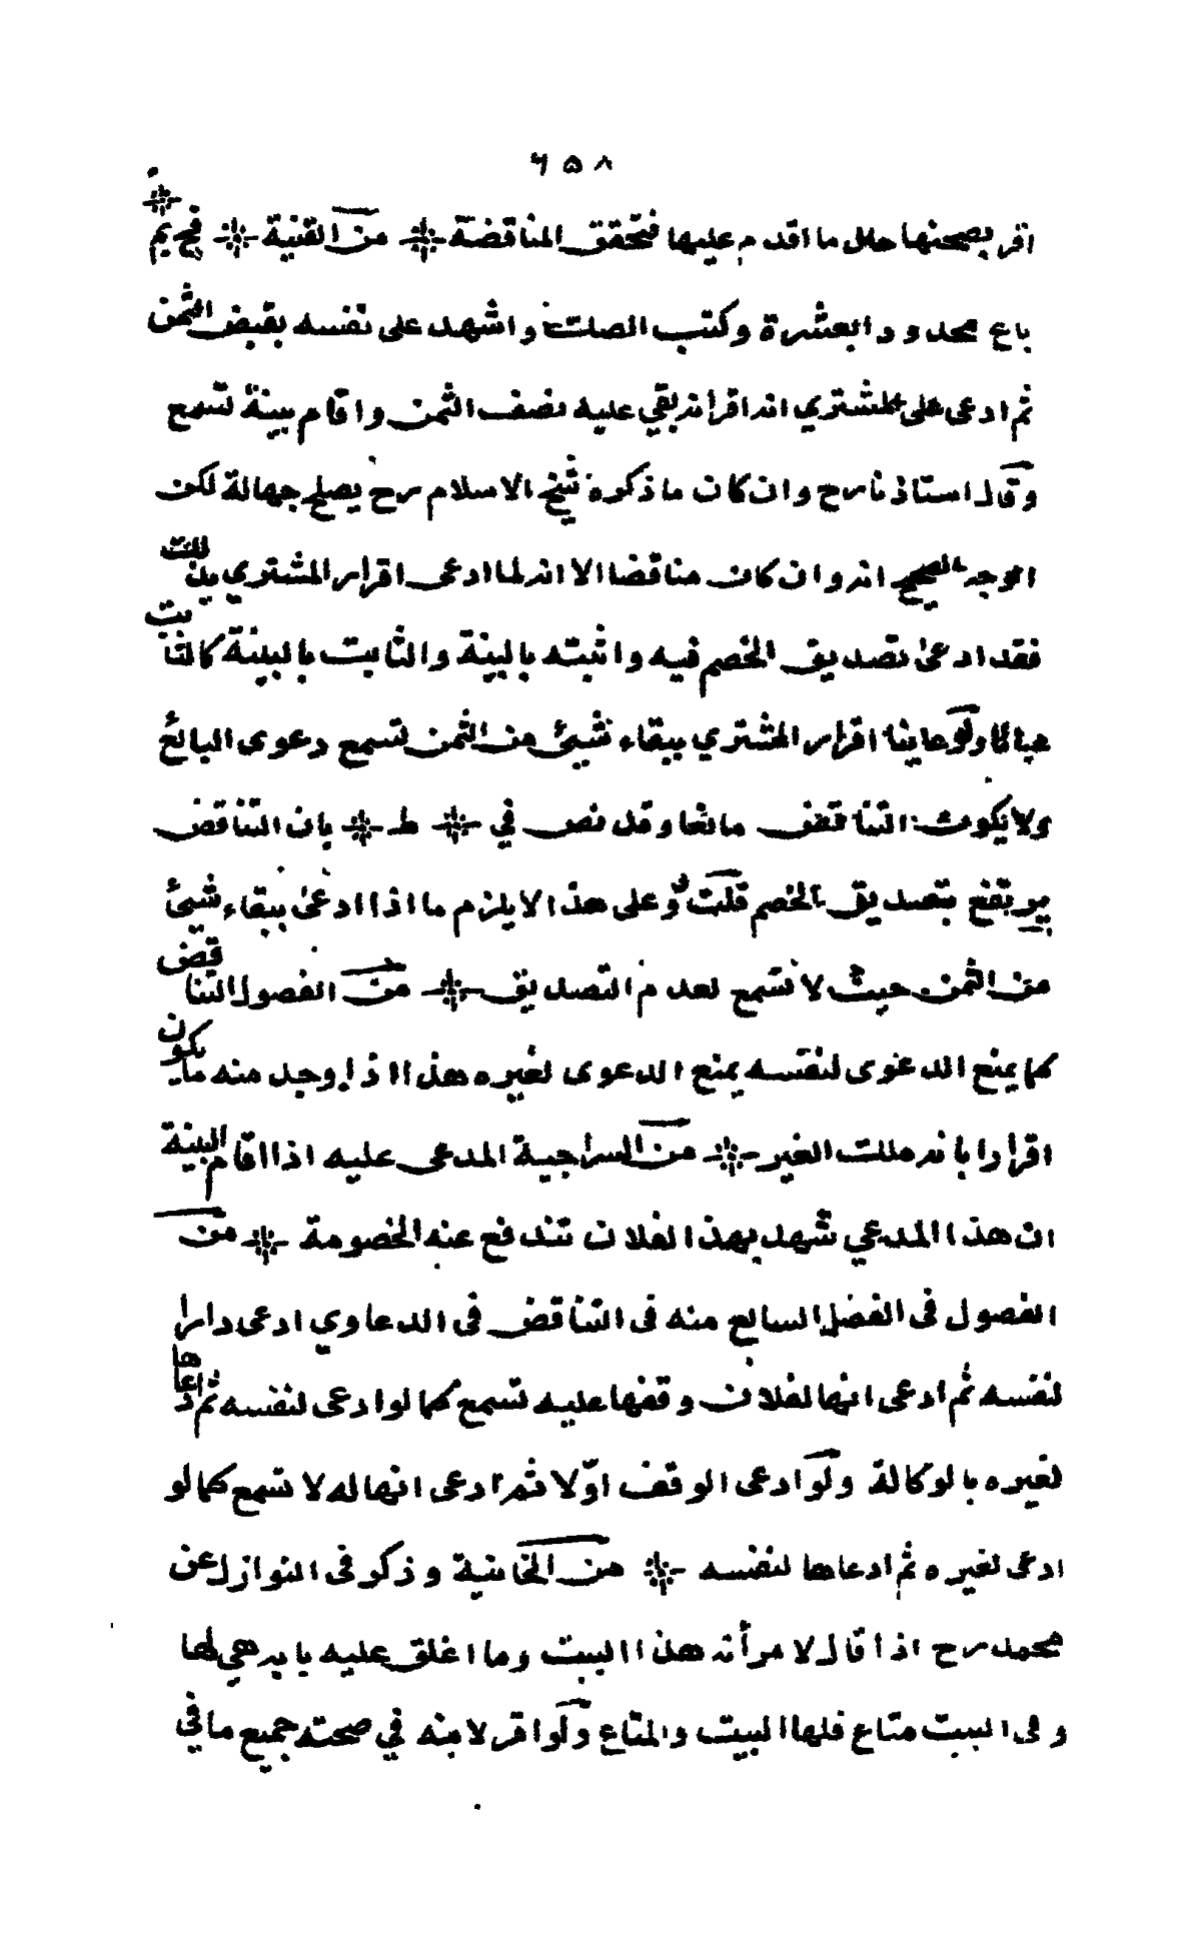 ٦٥٨
اقر بصحتها حال ما اقدم عليها فتحقق المناقضة ۞ من القنية ۞ فح يم ۞
باع محدودا بعشرة وكتب الصك واشهد على نفسه بقبض الثمن
ثم ادعى على المشتري انه اقر انه بقي عليه نصف الثمن واقام بينة تسمع
وقال استاذنا رح وان كان ما ذكره شيخ الاسلام رح يصلح جهالة لكن
الوجه الصحيح انه وان كان مناقضا الا انه لما ادعى اقرار المشتري بذلك
فقد ادعى تصديق الخصم فيه واثبته بالبينة والثابت بالبينة كالثابت
عيانا ولو عاينا اقرار المشتري ببقاء شيئ من الثمن تسمع دعوى البائع
ولا يكون التناقض مانعا وقد نص في ۞ ط ۞ بان التناقض
يرتفع بتصديق الخصم قلت وعلى هذا لا يلزم ما اذا ادعى ببقاء شيئ
من الثمن حيث لا تسمع لعدم التصديق ۞ من الفصول التناقض
كما يمنع الدعوى لنفسه يمنع الدعوى لغيره هذا اذا وجد منه ما يكون
اقرارا بانه ملك الغير ۞ من السراجية المدعى عليه اذا اقام البينة
ان هذا المدعي شهد بهذا لفلان تندفع عنه الخصومة ۞ من
الفصول فى الفصل السابع منه فى التناقض فى الدعاوي ادعى دارا
لنفسه ثم ادعى انها لفلان وقفها عليه تسمع كما لو ادعى لنفسه ثم ادعاها
لغيره بالوكالة ولو ادعى الوقف اولا ثم ادعى انها له لا تسمع كما لو
ادعى لغيره ثم ادعاها لنفسه ۞ من الخانية وذكر فى النوازل عن
محمد رح اذا قال لامرأته هذا البيت وما اغلق عليه بابه هي لها
وفى البيت متاع فلها البيت والمتاع ولو اقر لابنه في صحته جميع ما في